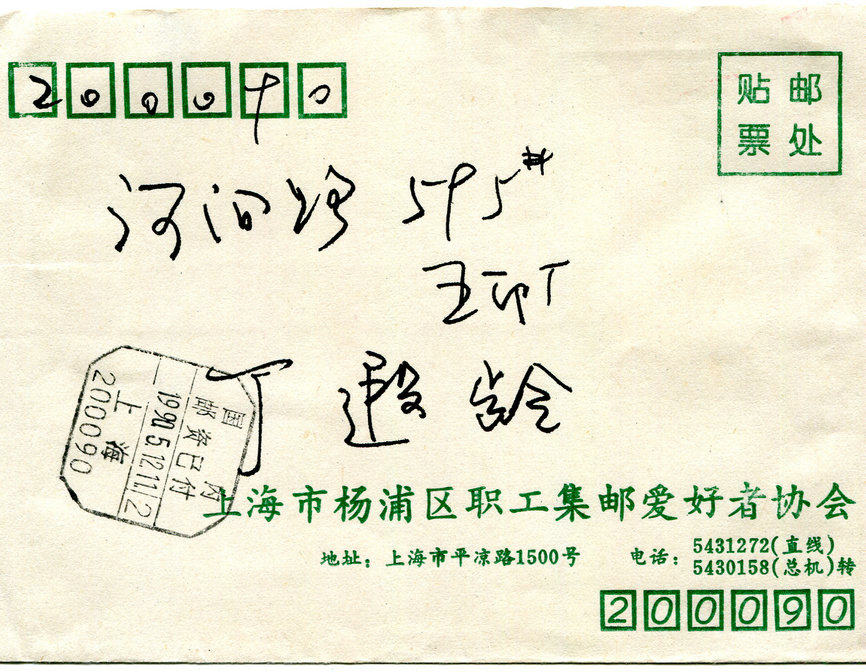 200090
贴邮
票处
河间路 595#
五印厂
丁遐龄
国内
邮资已付
1990.5.12 11/2
上海
200090
上海市杨浦区职工集邮爱好者协会
地址：上海市平凉路1500号 电话：5431272(直线)
5430158(总机)转
200090